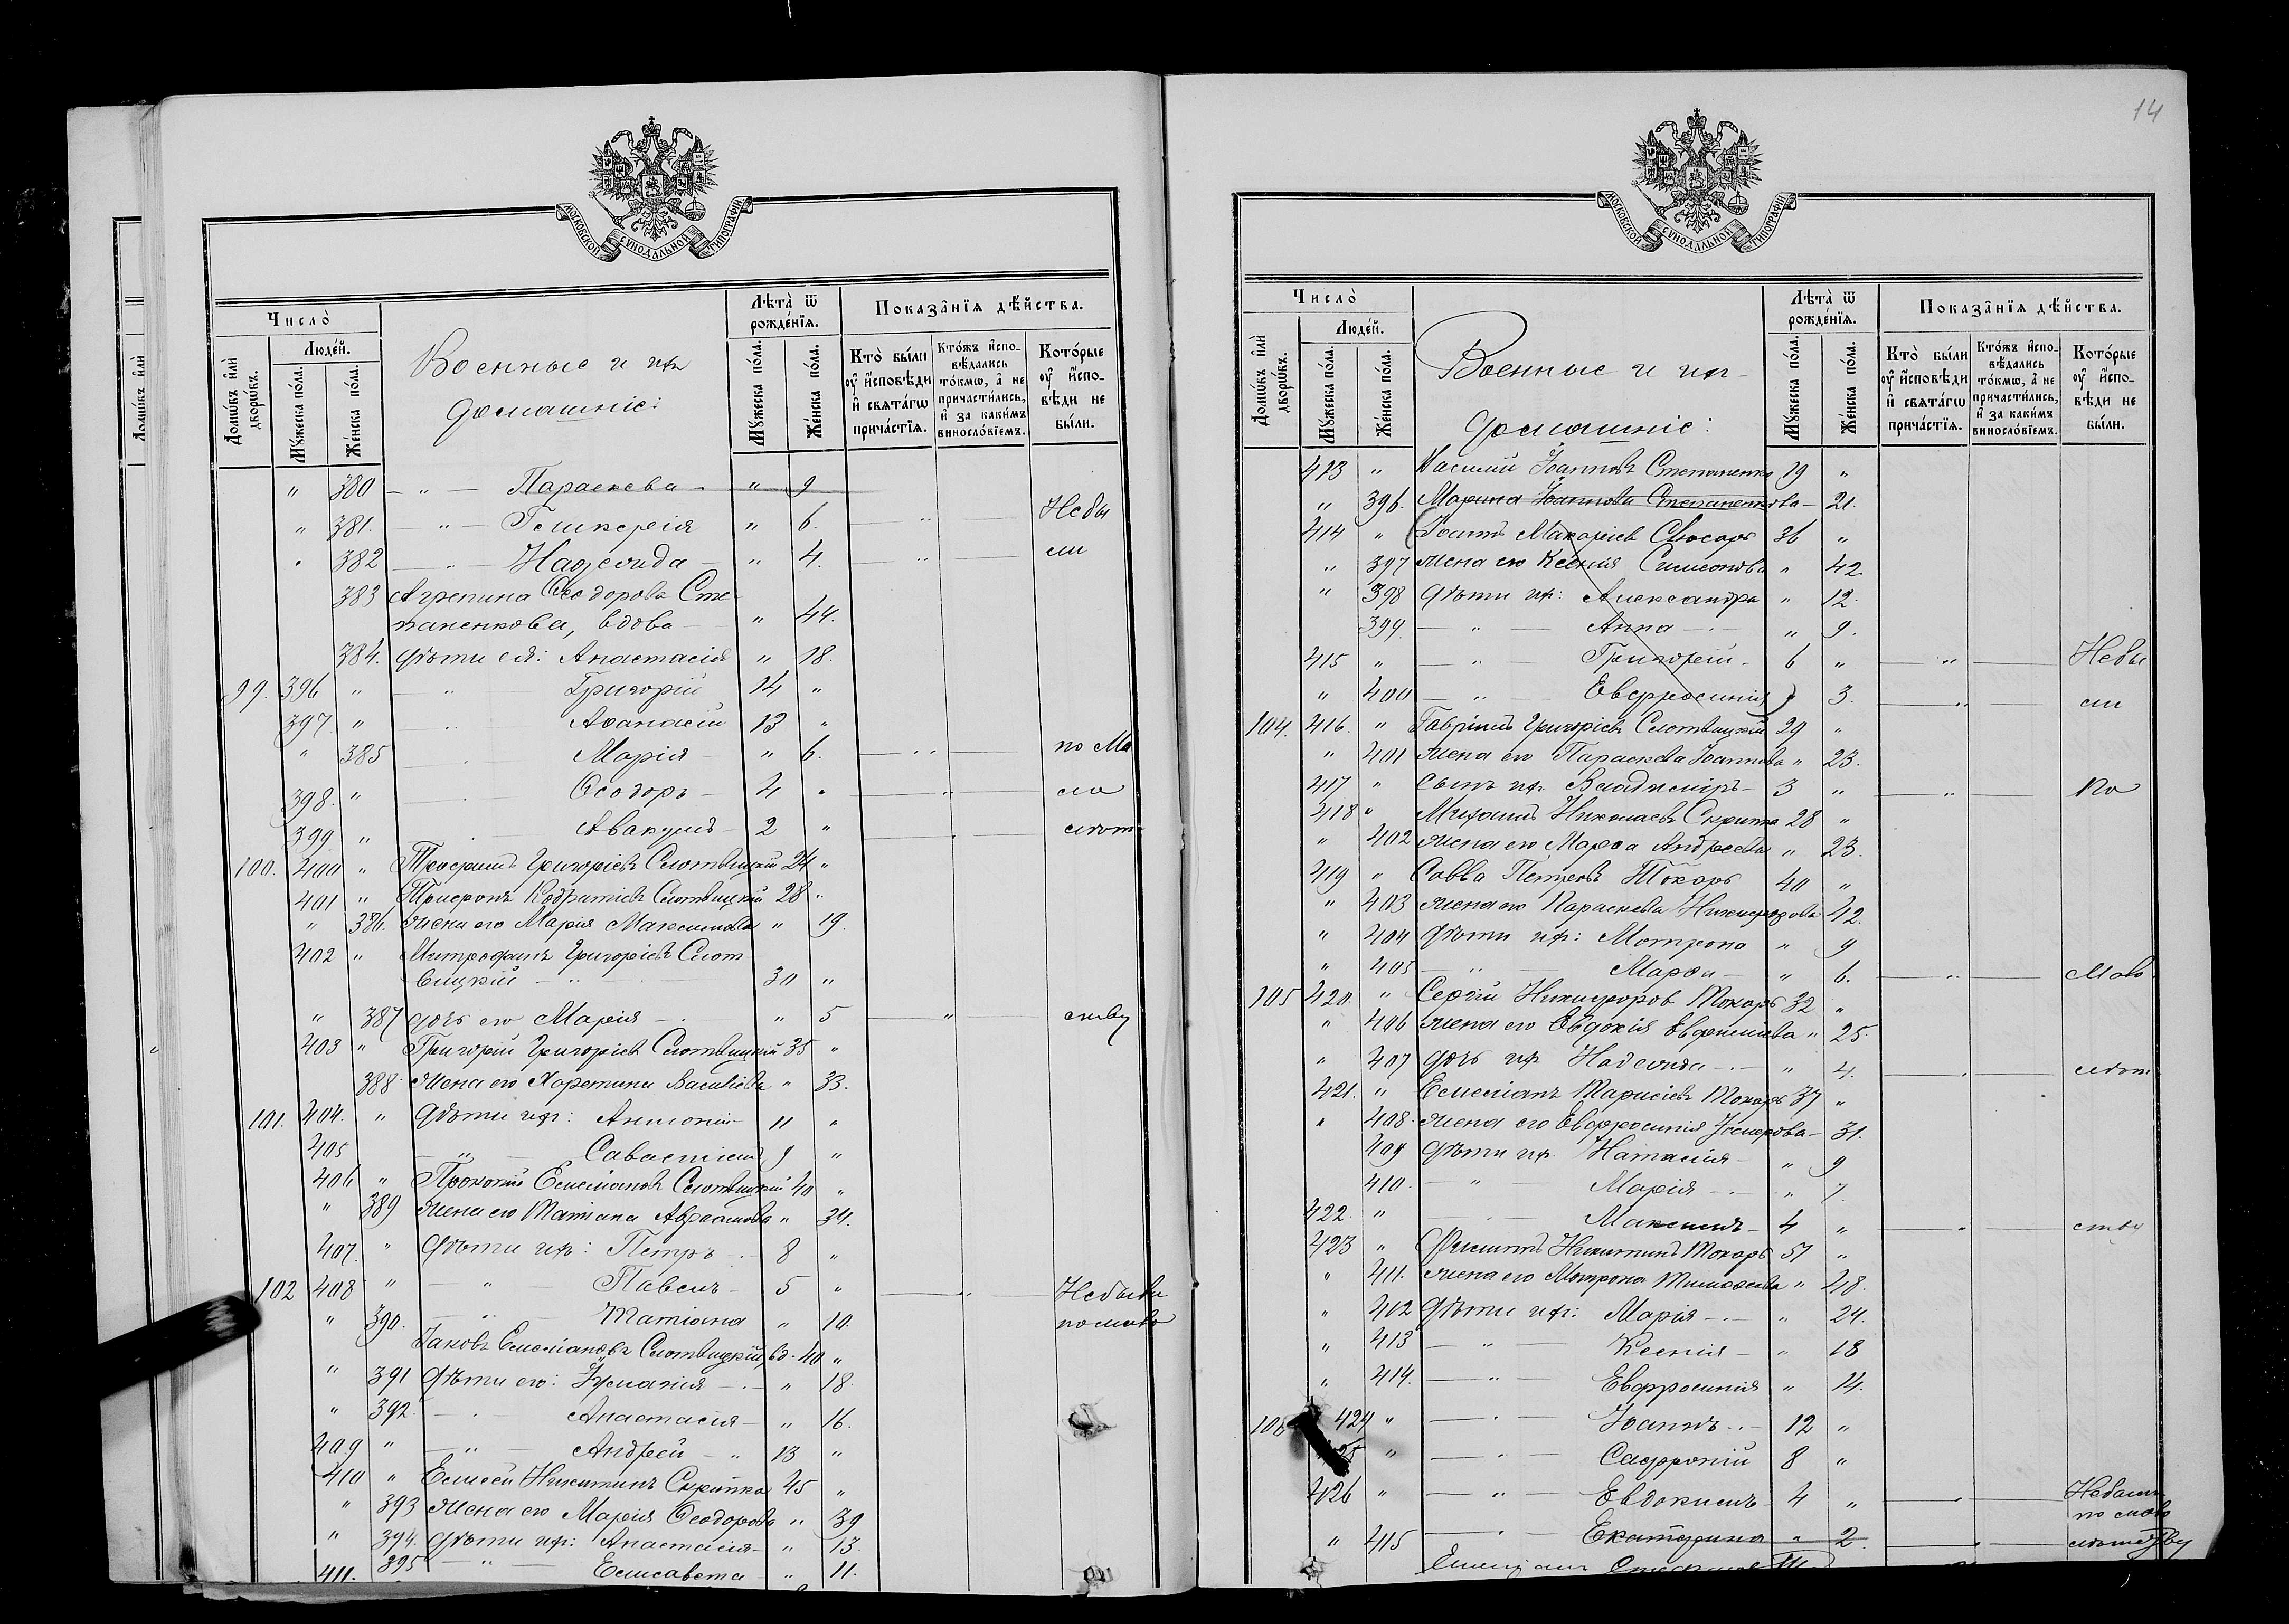 МОСКОВСКОЙ СѴНОДАЛЬНОЙ ТИПОГРАФІИ
Число̀
Людє́й.
Домѡ́въ и҆лѝ дворѡ́въ.
Мꙋ́жеска по́ла.
Же́нска по́ла.
Военные и их
домашніе:
Лѣта̀ ѿ рождє́нїѧ.
Мꙋ́жеска по́ла.
Же́нска по́ла.
Показа̑нїѧ дѣ́йства.
Кто̀ бы́ли ᲂу҆ и҆сповѣ́ди и҆ свѧта́гѡ прича́стїѧ.
Кто́жъ и҆сповѣ́дались то́кмѡ, а҆ не причасти́лись, и҆ за каки́мъ винослові́емъ.
Кото́рые ᲂу҆ и҆спо́вѣди не бы́ли.
" 380 — " — Параскева — " 9
" 381. — " — Гликерія " 6. — " — Небы
" 382 — " — Надежда — " 4. — " — ли
383 Агрепина Ѳеодорова Сте
паненкова, вдова — " 44.
384. Дѣти ея: Анастасія " 18.
99. 396 " — " Григорій 14 "
397 " — " Аѳанасій 13 "
" 385 — Марія — " 6. — " — по Ма
398. " — Ѳеодоръ — 4 " — " — ло
399 " — Аввакумъ — 2 " — " — лѣт
100. 400 " Трофимъ Григоріевъ Слотвицкій 24 "
401 " Трифонъ Кодратіевъ Слотвицкій 28 "
" 386. Жена его Марія Максимова " 19.
402 " Митрофанъ Григоріевъ Слот
вицкій — " — 30 "
" 387 дочь его Марія — " 5 — " — ству
403 " Григорій Григоріевъ Слотвицкій 35 "
388. Жена его Харитина Василіева " 33.
101. 404. " Дѣти их: Антоній — 11 "
405 — " — Савастіанъ 9 "
406 " Прокопій Емеліановъ Слотвицкій 40 "
" 389 Жена его Татіана Авраамова " 34.
407. " Дѣти их: Петръ — 8 "
102 408 " — " — Павелъ — 5 " — " — Небыли
" 390. — " — Татіана " 10. по мало
Іаковъ Емеліановъ Слотвицкій, вд. 40 "
" 391 Дѣти его: Іуліанія — " 18.
" 392. — " — Анастасія — " 16.
409 " — " — Андрей — " 13 "
410 " Елисей Никитинъ Скрипка 45 "
" 393 Жена его Марія Ѳеодорова " 39
" 394. Дѣти их: Анастасія — " 13.
395 — " — Елисавета — " 11.
411.
14
МОСКОВСКОЙ СѴНОДАЛЬНОЙ ТИПОГРАФІИ
Число̀
Людє́й.
Домѡ́въ и҆лѝ дворѡ́въ.
Мꙋ́жеска по́ла.
Же́нска по́ла.
Военные и их
домашніе:
Лѣта̀ ѿ рождє́нїѧ.
Мꙋ́жеска по́ла.
Же́нска по́ла.
Показа̑нїѧ дѣ́йства.
Кто̀ бы́ли ᲂу҆ и҆сповѣ́ди и҆ свѧта́гѡ прича́стїѧ.
Кто́жъ и҆сповѣ́дались то́кмѡ, а҆ не причасти́лись, и҆ за каки́мъ винослові́емъ.
Кото́рые ᲂу҆ и҆спо́вѣди не бы́ли.
413 " Василій Іоанновъ Степаненко 19 "
" 396. Марина Іоаннова Степаненкова — 21.
414 " Іоаннъ Макаріевъ Слюсарь 36 "
" 397 Жена его Ксенія Симеонова " 42
" 398 Дѣти их: Александра " 12.
399. — " — Анна — " 9.
415 " — " — Григорій — 6 " — " — Небы
" 400 — " — Евфросинія " 3. — " — ли
104. 416. " Гавріилъ Григоріевъ Слотвицкій 29 "
" 401 Жена его Параскева Іоаннова " 23.
417 " Сынъ их Владиміръ — 3 " — " — По
418 " Михаилъ Николаевъ Скрипка 28 "
" 402 Жена его Марѳа Андреева " 23.
419 " Савва Петровъ Токарь 40 "
" 403 Жена его Параскева Никифорова 42.
" 404 Дѣти их: Матрона " 9
" 405 — " — Марѳа — " 6. — " — Мало
105 420. " Сергій Никифоров Токарь 32 "
" 406 Жена его Евдокія Евфимиева " 25
" 407 дочь их Надежда — " 4. — " — лѣт
421. " Емеліанъ Тарасіевъ Токарь 37 "
" 408. Жена его Евфросинія Іосифова — 31.
409 Дѣти их Наталія — " 9
410. — " — Марія — " 7.
422. " — Максимъ — 4 " — " — ству
423 " Филиппъ Никитинъ Токарь 57 "
" 411. Жена его Матрона Тимоѳеева " 48.
" 412 Дѣти их: Марія — " 24.
" 413 — " — Ксенія — " 18
" 414. — " — Евфросинія " 14.
106 424 " — " — Іоаннъ — 12 "
425 " — " — Сафроній 8 "
426 " — " — Евдокимъ 4 " — " — Небыли
по мало
" 415 — " — Екатерина " 2 — " — лѣтству